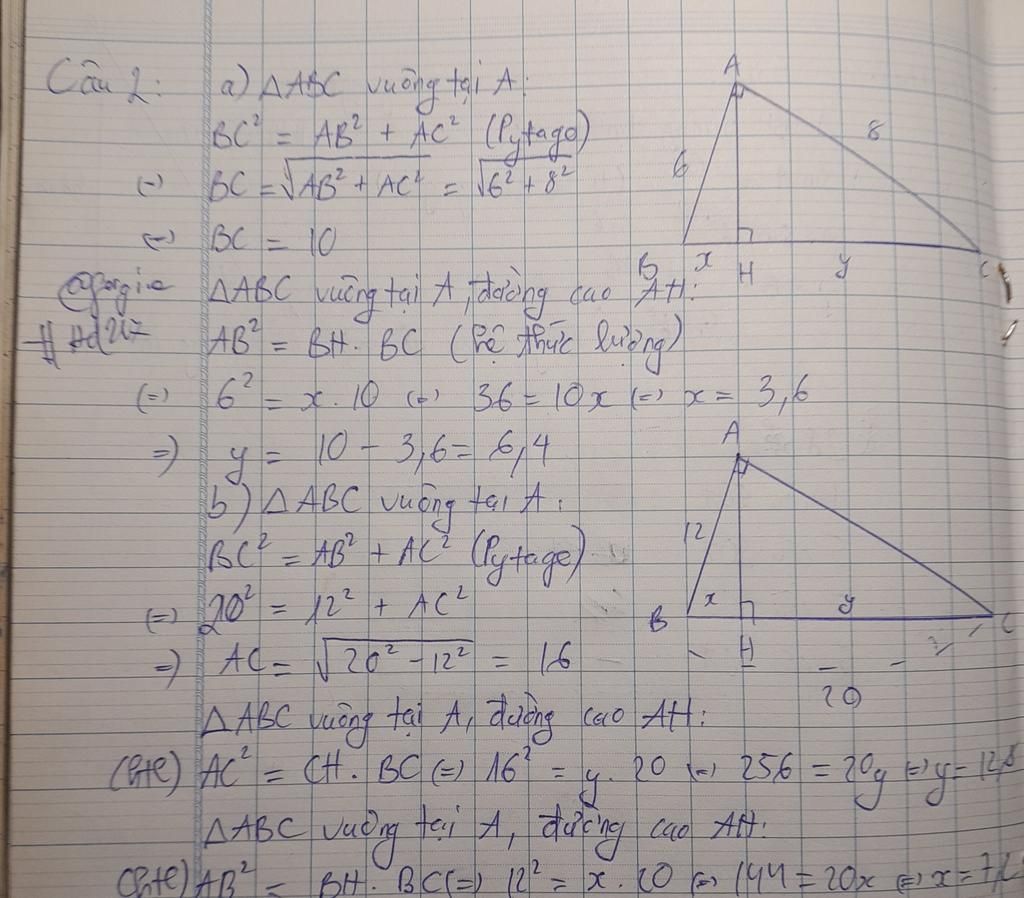 Câu 2: a) ΔABC vuông tại A:
BC² = AB² + AC² (Pytago)
(=) BC = √AB² + AC² = √6² + 8²
(=) BC = 10
ΔABC vuông tại A, đường cao AH:
AB² = BH. BC (hệ thức lượng)
(=) 6² = x. 10 (=) 36 = 10x (=) x = 3,6
=) y = 10 - 3,6 = 6,4
b) ΔABC vuông tại A:
BC² = AB² + AC² (Pytago)
(=) 20² = 12² + AC²
=) AC = √20² - 12² = 16
ΔABC vuông tại A, đường cao AH:
AC² = CH. BC (=) 16² = y. 20 (=) 256 = 20y (=) y = 12,8
ΔABC vuông tại A, đường cao AH:
AB² = BH. BC (=) 12² = x. 20 (=) 144 = 20x (=) x = 7,2
A
6
8
B x H y C
A
12
B x y C
H
20